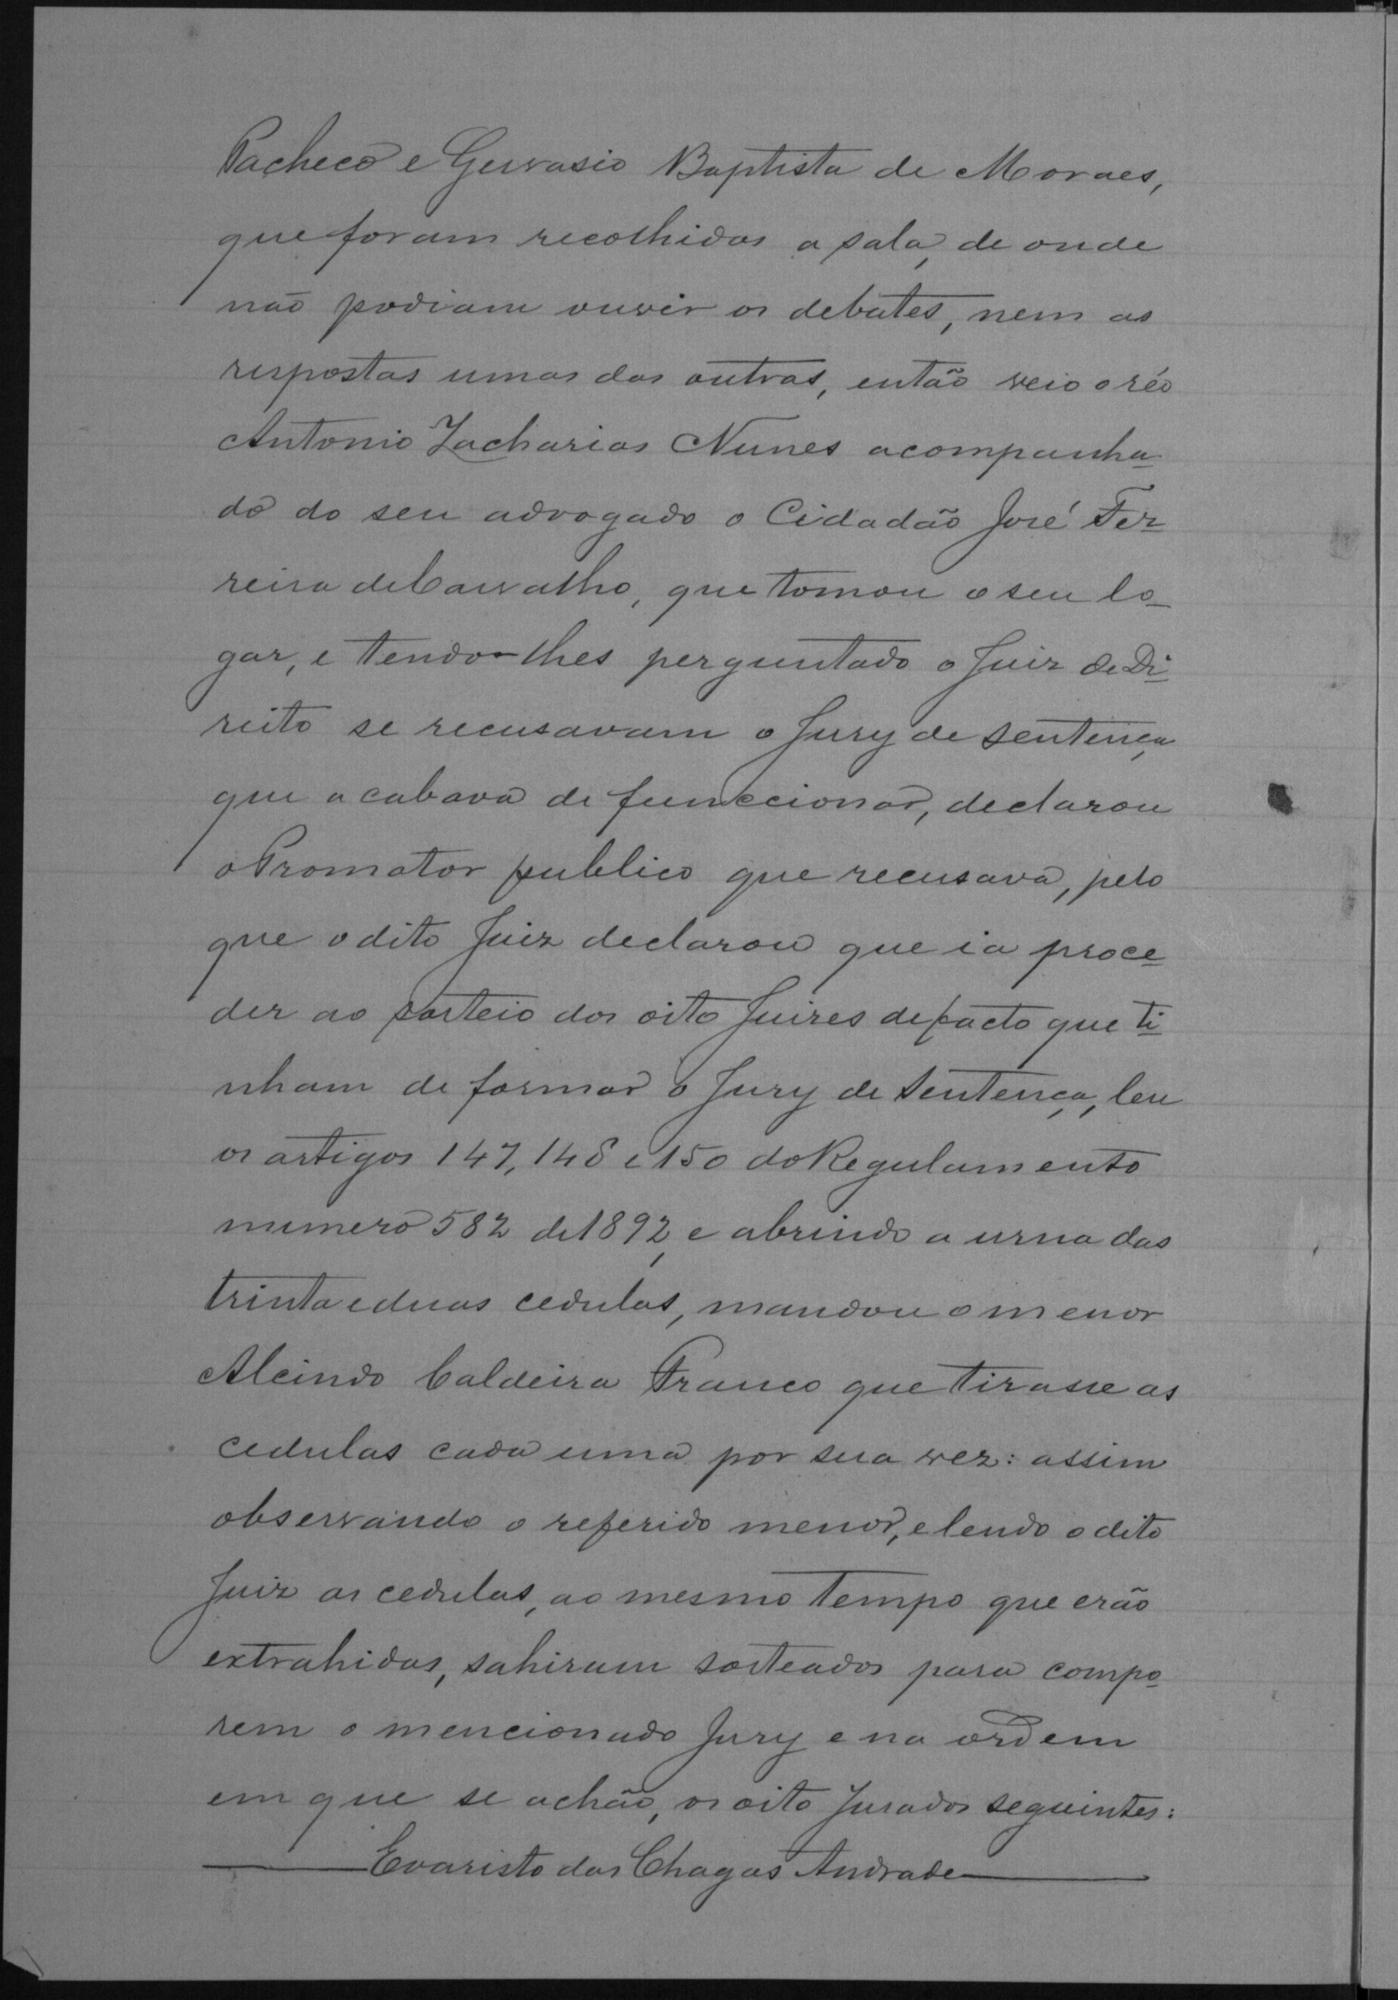 Pacheco e Gervasio Baptista de Moraes,
que foram recolhidas a sala, de onde
não podiam ouvir os debates, nem as
respostas umas das outras, então veio o réo
Antonio Zacharias Nunes acompanha-
do do seu advogado o Cidadão José Fer-
reira de Carvalho, que tomou o seu lo-
gar, e tendo-lhes perguntado o Juiz de Di-
reito se recusavam o Jury de sentença
que acabava de funccionar, declarou
o Promotor publico que recusava, pelo
que o dito Juiz declarou que ia proce-
der ao sorteio dos oito Juizes de facto que ti-
nham de formar o Jury de Sentença, leu
os artigos 147, 148 e 150 do Regulamento
numero 582 de 1892, e abrindo a urna das
trinta e duas cedulas, mandou o menor
Alcindo Caldeira Franco que tirasse as
cedulas cada uma por sua vez: assim
observando o referido menor, e lendo o dito
Juiz as cedulas, ao mesmo tempo que erão
extrahidas, sahiram sorteados para compo-
rem o mencionado Jury e na ordem
em que se achão, os oito Jurados seguintes:
Evaristo das Chagas Andrade